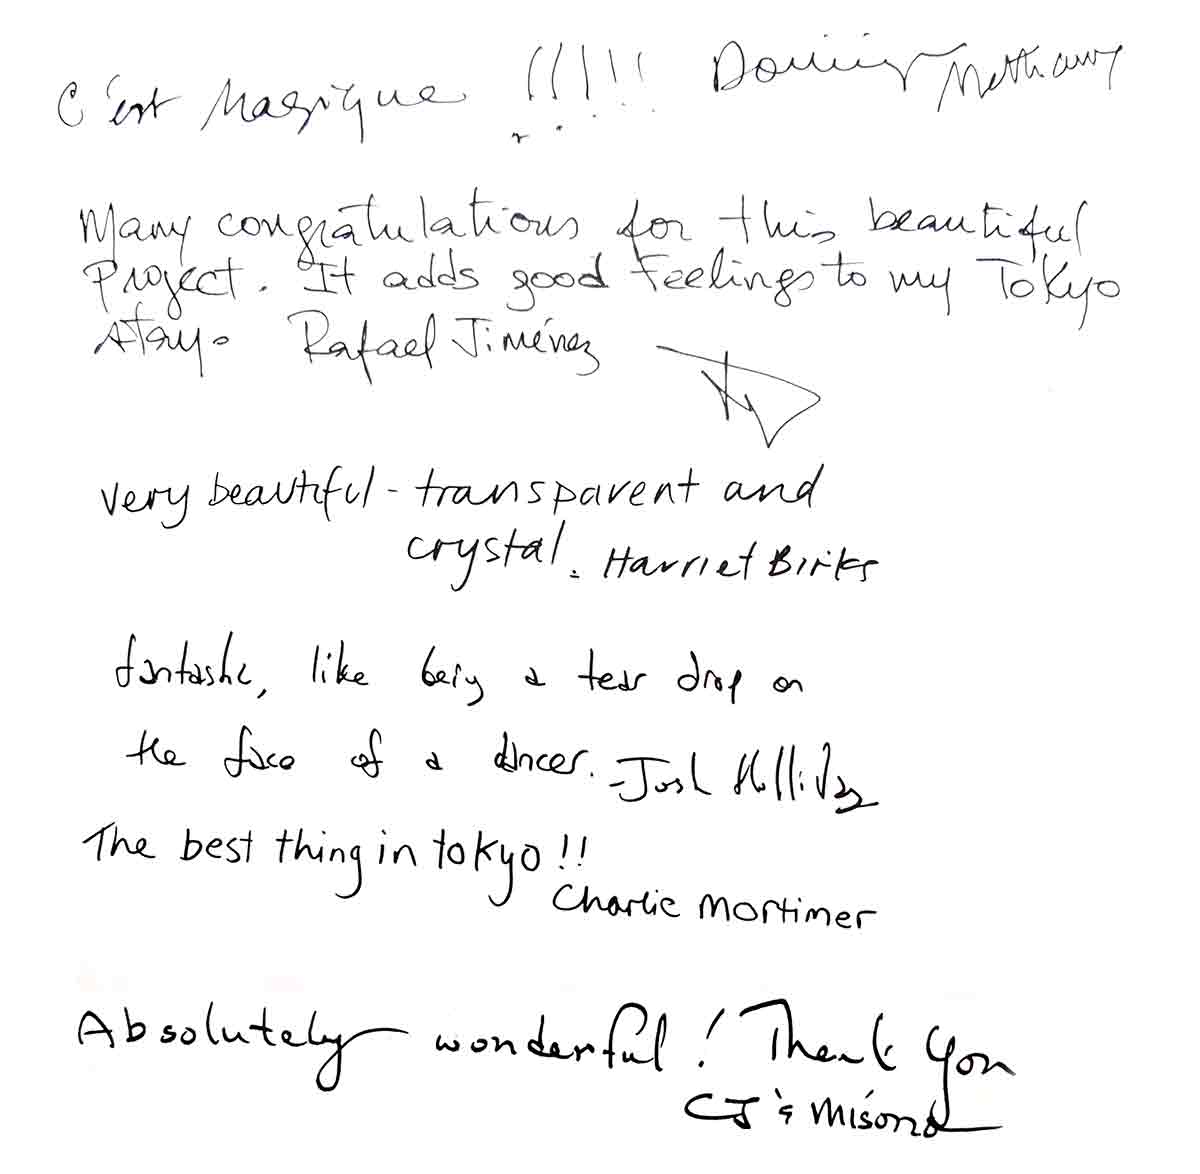 C'est Magique !!!!!
Many congratulations for this beautiful
Project. It adds good Feelings to my Tokyo
stay. Rafael Jiménez
very beautiful - transparent and
crystal. Harriet Birks
fantastic, like being a tear drop on
the face of a dancer. - Josh Holliday
The best thing in tokyo!!
Charlie Mortimer
Absolutely wonderful! Thank you
CJ & Misono